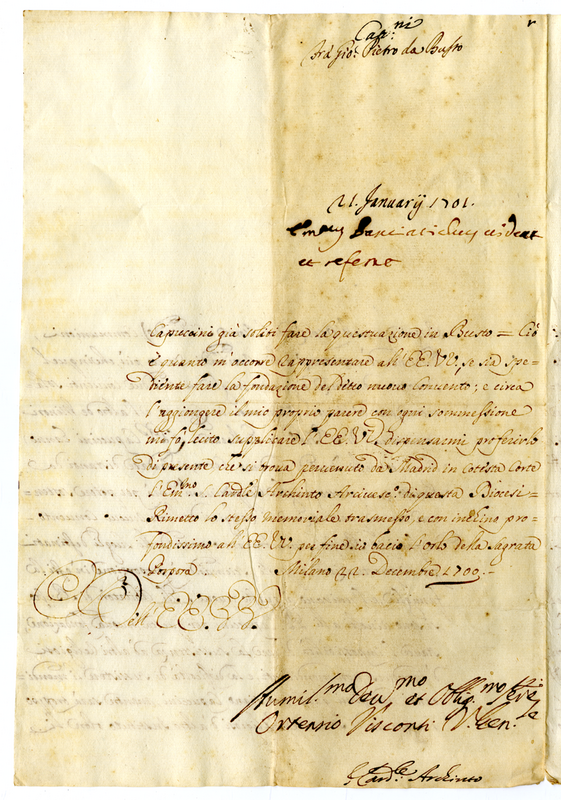 Cap.ni
fra gio: Pietro da Busto
21. Januarij 1701.
Em.us Panciatichus videat
et referat
Capuccini già soliti fare la questuazione in Busto = Ciò
è quanto m'occorre rappresentare all' EE. VV. se sia spe-
diente fare la fondazione del ditto nuovo Convento; e circa
l'aggiongere il mio proprio parere con ogni sommessione
mi fò lecito supplicare l'EE. VV. dispensarmi proferirlo
di presente che si trova pervenuto da Madrid in cotesta Corte
l'Em.mo S. Card.le Archinto Arcivesc.o di questa Diocesi =
Rimetto lo stesso memoriale trasmesso, e con inchino pro-
fondissimo all' EE. VV. per fine io bacio l'orlo della sagrata
Porpora Milano 22. Decembre 1700.-
Dell' EE. VV.
Humil.mo Deu.mo et Oblig.mo Ser.e
Ortensio Visconti V. Gen.le
S. Card.le Archinto